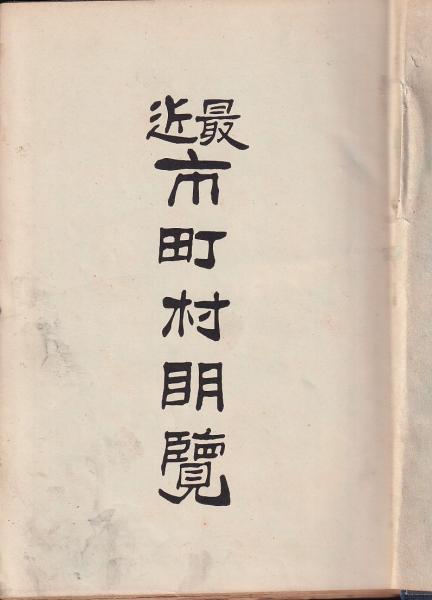 最近
市町村明覽